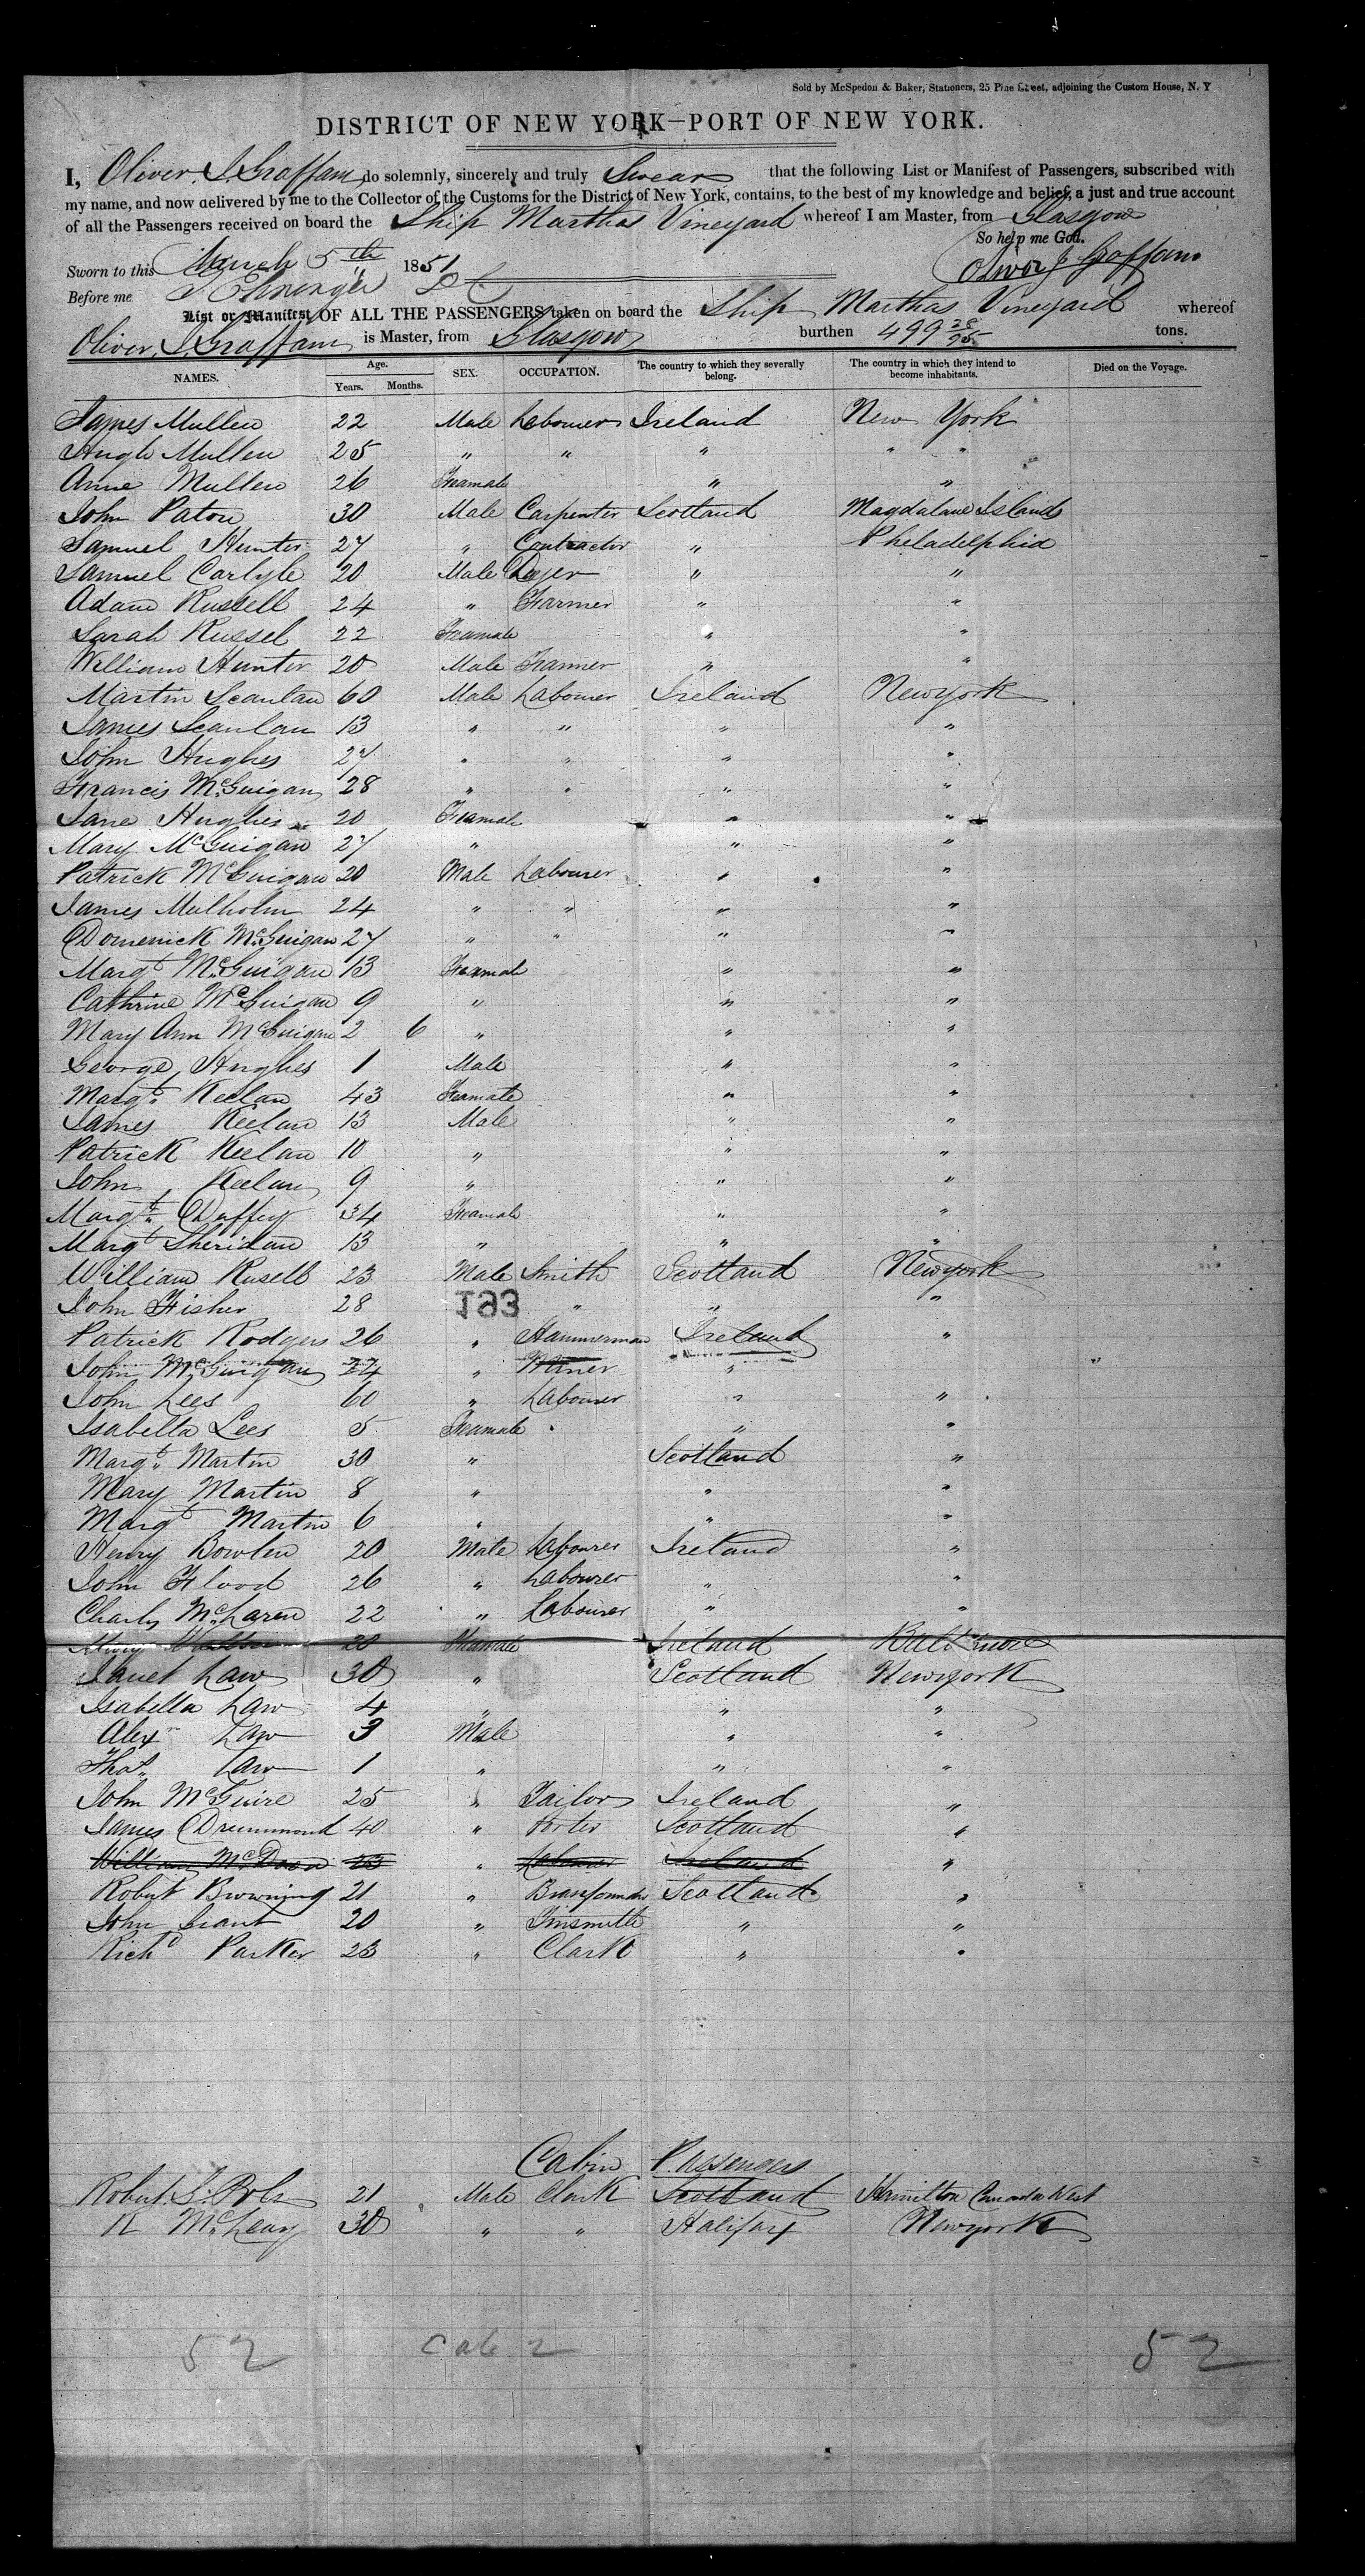 Sold by McSpedon & Baker, Stationers, 25 Pine Street, adjoining the Custom House, N. Y
DISTRICT OF NEW YORK—PORT OF NEW YORK.
I, Oliver J. Graffam, do solemnly, sincerely and truly Swear that the following List or Manifest of Passengers, subscribed with
my name, and now delivered by me to the Collector of the Customs for the District of New York, contains, to the best of my knowledge and belief, a just and true account
of all the Passengers received on board the Ship Marthas Vineyard whereof I am Master, from Glasgow
So help me God.
Sworn to this March 5th 1851 Oliver J Graffam
Before me
List or Manifest OF ALL THE PASSENGERS taken on board the Ship Marthas Vineyard whereof
Oliver J. Graffam is Master, from Glasgow burthen 499 28/95 tons.
NAMES. Age. Years. Months. SEX. OCCUPATION. The country to which they severally belong. The country in which they intend to become inhabitants. Died on the Voyage.
James Mullen 22 Male Labourer Ireland New York
Hugh Mullen 25 " " " " "
Anne Mullen 26 Feamale " "
John Paton 30 Male Carpenter Scotland Magdalane Islands
Samuel Hunter 27 " Contractor " Pheladelphia
Samuel Carlyle 20 Male Dyer " "
Adam Russell 24 " Farmer " "
Sarah Russel 22 Feamale " "
William Hunter 20 Male Farmer " "
Martin Scanlan 60 Male Labourer Ireland Newyork
James Scanlan 13 " " " "
John Hughes 27 " " " "
Francis McGuigan 28 " " " "
Jane Hughes 20 Feamale " "
Mary McGuigan 27 " " "
Patrick McGuigan 20 Male Labourer " "
James Mulholm 24 " " " "
Domenick McGuigan 27 " " " "
Margt McGuigan 13 Feamale " "
Cathrine McGuigan 9 " " "
Mary Ann McGuigan 2 6 " " "
George Hughes 1 Male " "
Margt Keelan 43 Feamale " "
James Keelan 13 Male " "
Patrick Keelan 10 " " "
John Keelan 9 " " "
Margt Duffey 34 Feamale " "
Margt Sheridan 13 " " "
William Rusell 23 Male Smith Scotland Newyork
John Fisher 28 193 " " "
Patrick Rodgers 26 " Hammerman Ireland "
John McGuigan 24 " Miner " "
John Lees 60 " Labourer " "
Isabella Lees 5 Feamale " "
Margt Martin 30 " Scotland "
Mary Martin 8 " " "
Margt Martin 6 " " "
Henry Bowlen 20 Male Labourer Ireland "
John Flood 26 " Labourer " "
Charles McLaren 22 " Labourer " "
Mary 20 Feamale Ireland Baltimore
Janet Law 30 " Scotland Newyork
Isabella Law 4 " " "
Alexr Law 3 Male " "
Thos Law 1 " " "
John McGuire 25 " Tailor Ireland "
James Drummond 40 " Porter Scotland "
William 23 " Labourer Ireland "
Robert Browning 21 " Brassfounder Scotland "
John Grant 20 " Tinsmith " "
Richd Parker 23 " Clark " "
Cabin Passengers
Robert 21 Male Clark Scotland Hamilton Canada West
R McLeay 30 " " Halifax Newyork
52 Cab 2 52